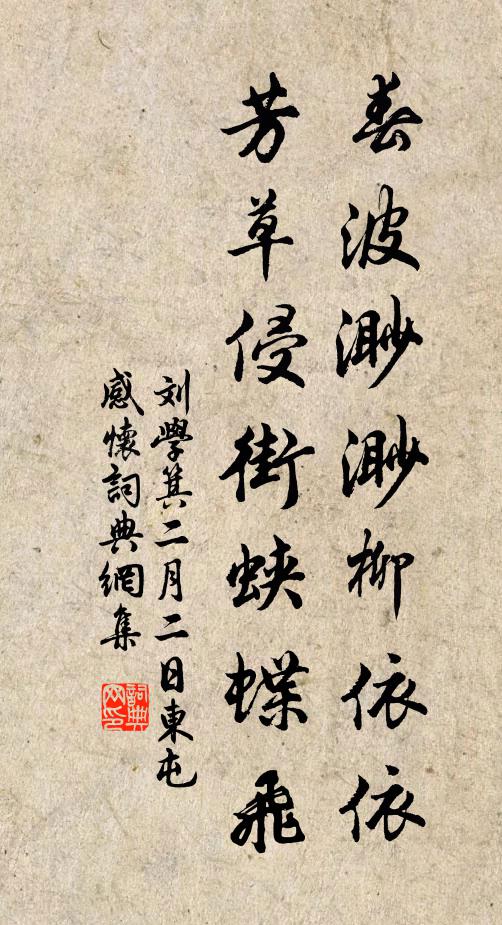 春波渺渺柳依依
芳草侵街蛺蝶飛
刘學箕二月二日東屯
感懷詞典網集
詞典网印